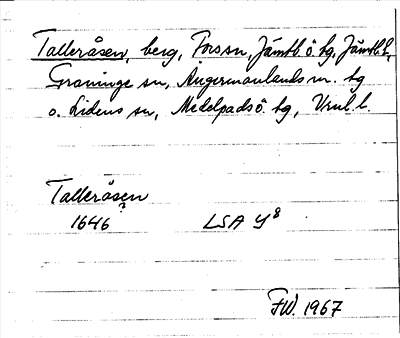 Talleråsen, berg, Fors sn, Jämtl. ö. tg, Jämtl. l,
Graninge sn, Ångermanlands m. tg
o. Lidens sn, Medelpads ö. tg, Vnl. l.
Talleråsen
?
1646 LSA Y8
FW. 1967